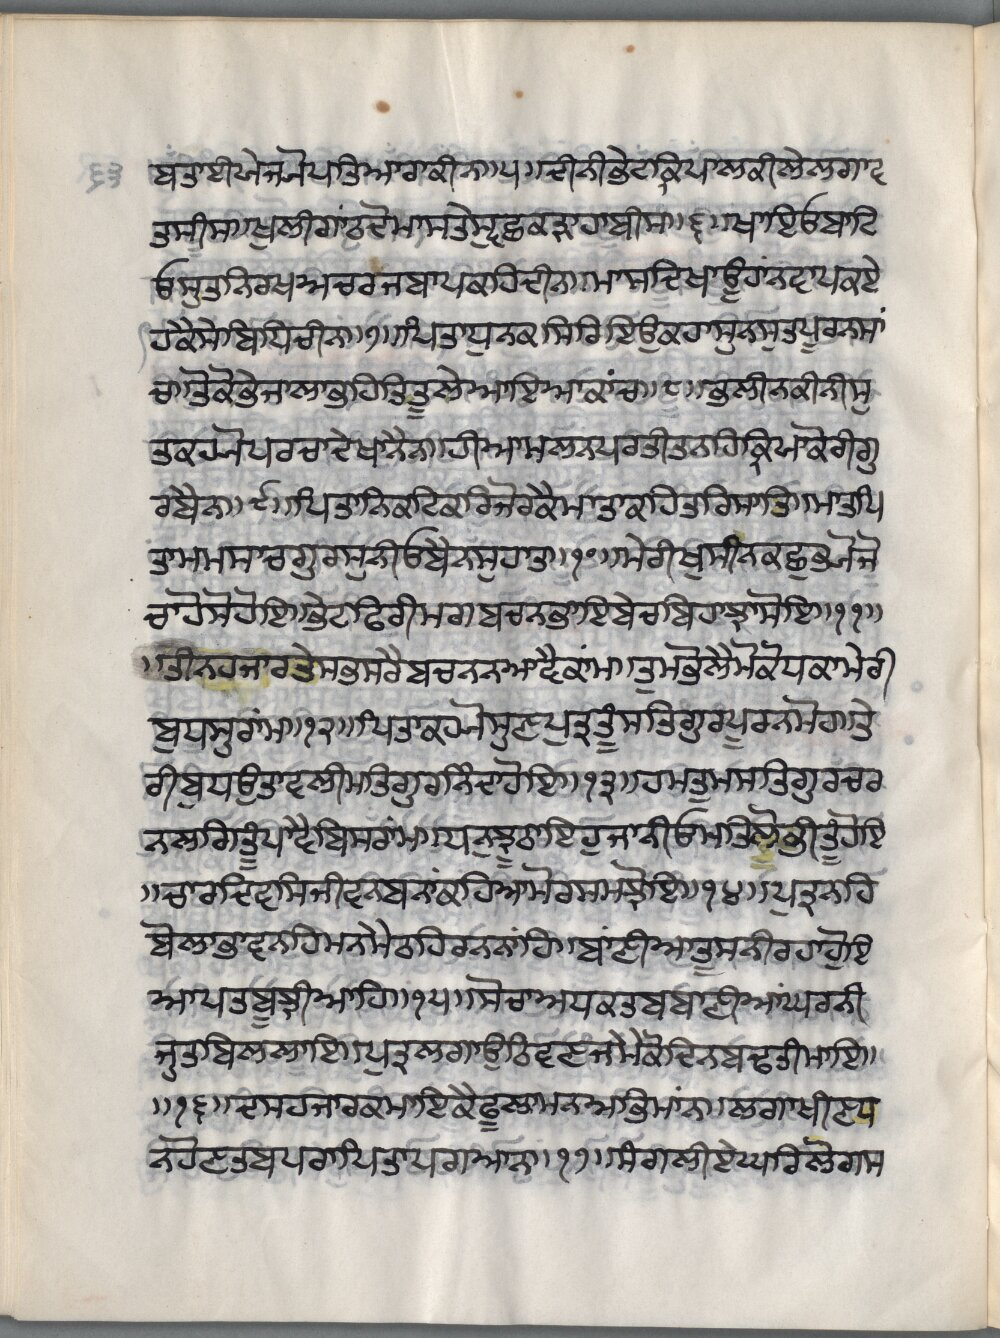 ਬਤਾਈਯੇਜਯੋਪਤਿਆਰਾਕੀਨਾ॥੫॥ਦੀਨੀਭੇਟਕ੍ਰਿਪਾਲਕੀਲੇਲਗਾਵ
ਤਸੀਸ॥ਖੁਲੀਗਾਂਠਦੋਮਾਸਤੇਸੁਦ੍ਰਛਕੜਾਹਾਬੀਸ॥੬॥ਖਾਇਓਬਾਟਿ
ਓਸੁਤੁਨਿਰਖਅਚਰਜਬਾਪਕਹਿਦੀਨ॥ਮਾਸਦਿਖਾਊਹਾਂਨਵਾਪਕਏ
ਹਕੈਸੇਬਿਧਿਚੀਨ॥੭॥ਪਿਤਾਪੁਨਕਸਿਰਿਇਉਕਹਾਸੁਨਸੁਤਪੂਰਨਸਾਂ
ਚਾ॥ਤੋਕੋਭੇਜਾਲਾਭਹਿਤਿਤੂਲੇਆਇਆਕਾਂਚ॥੮॥ਭੁਲੀਨਕੀਨੀਸੁ
ਤਕਹਯੋਪਰਚਾਦੇਖਾਨੈਨ॥ਹੀਆਮਲਨਪਰਤੀਤਨਹਿਕ੍ਰਿਯਾਕੋਰੀਗੁ
ਰਬੈਨ॥੯॥ਪਿਤਾਨਿਕਟਿਕਰਿਜੋਰਕੈਮਾਤਾਕਹਿਤਰਿਸਾਤਿ॥ਮਾਤਪਿ
ਤਾਮਮਸਾਚਗੁਰਸੁਨੀਓਬੈਨਸੁਹਾਤ॥੧੦॥ਮੇਰੀਖੁਸੀਨਕਛੁਭਯੋਜੋ
ਚਾਹੋਸੋਹੋਇ॥ਭੇਟਫਿਰੀਮਗਬਚਨਭਾਇਬੇਚਬਿਹਾਝਾਸੋਇ॥੧੧॥
॥ਤੀਨਹਜਾਰਤੇਸਭੁਸਰੈਬਚਨਨਆਵੈਕਾਂਮ॥ਤੁਮਭੁਲੈਮੋਕੋਧਕਾਮੇਰੀ
ਬੁਧਸੁਰਾਂਮ॥੧੨॥ਪਿਤਾਕਹਯੋਸੁਣਪੁੜਤੂੰਸਤਿਗੁਰਪੂਰਨਸੋਗ॥ਤੇ
ਰੀਬੁਧਉਤਾਵਲੀਮਤਿਗੁਰਨਿੰਦਾਹੋਇ॥੧੩॥ਹਮਤੁਮਸਤਿਗੁਰਚਰ
ਨਲਗਿਤੂੰਪਾਵੈਬਿਸਰਾਂਮ॥ਧਨੁਝੂਠਾਇਹੁਜਾਨੀਓਮਤਿਲੋਭੀਤੂੰਹੋਇ
॥ਚਾਰਦਿਵਸਿਜੀਵਨਬਨਾਂਕਹਿਆਮੋਰਸਮਝੋਇ॥੧੪॥ਪੁੜਨਹਿ
ਬੋਲਾਭਾਵਨਹਿਮਨੇਮੈਠਹਿਰਨਨਾਂਹਿ॥ਬਾਂਣੀਆਤੂਸਨੀਰਹਾਹੋਇ
ਆਪਤਬੂਝੀਆਹਿ॥੧੫॥ਸੋਚਾਅਧਕਤਬਬਾਣੀਆਂਘਰਨੀ
ਜੁਤਬਿਲਲਾਇ॥ਪੁੜਲਗਾਉਠਿਵਣਜੋਮੈਕੋਦਿਨਬਢਤੀਮਾਇ॥
॥੧੬॥ਦਸਹਜਾਰਕਮਾਇਕੈਫੂਲਾਮਨਅਭਿਮਾਂਨ॥ਲਗਾਖੀਣਧ
ਨਹੋਣਤਬਪਗਪਿਤਾਪਗਆਨ॥੧੭॥ਸੰਗਲੀਏਘਰਿਲੋਗਸ